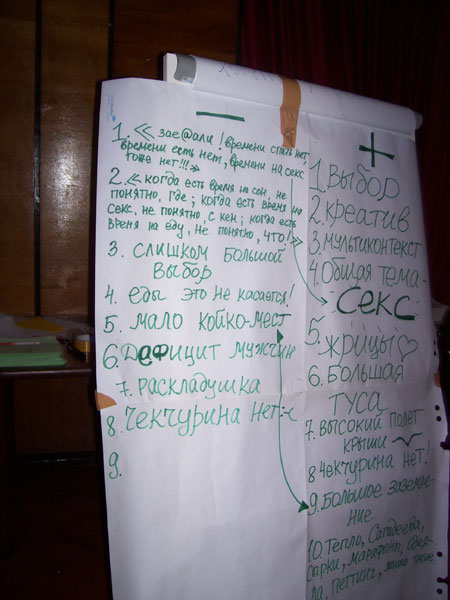 —
1. «зае@али! времени спать нет,
времени есть нет, времени на секс
тоже нет!!!»
2. «когда есть время на сон, не
понятно, где; когда есть время на
секс, не понятно, с кем; когда есть
время на еду, не понятно, что!»
3. слишком большой
выбор
4. еды это не касается!
5. мало койко-мест
6. Дефицит мужчин
7. Раскладушка
8. Чекчурина нет :-(
9.
+
1. Выбор
2. креатив
3. мультиконтекст
4. Общая тема-
секс
5. жрицы ♡
6. Большая
туса
7. высокий полет
крыши
8 чекчурина нет!
9. Большое заземле-
ние
10. Тепло,
сырки, марафоны,
ла, петтинг,